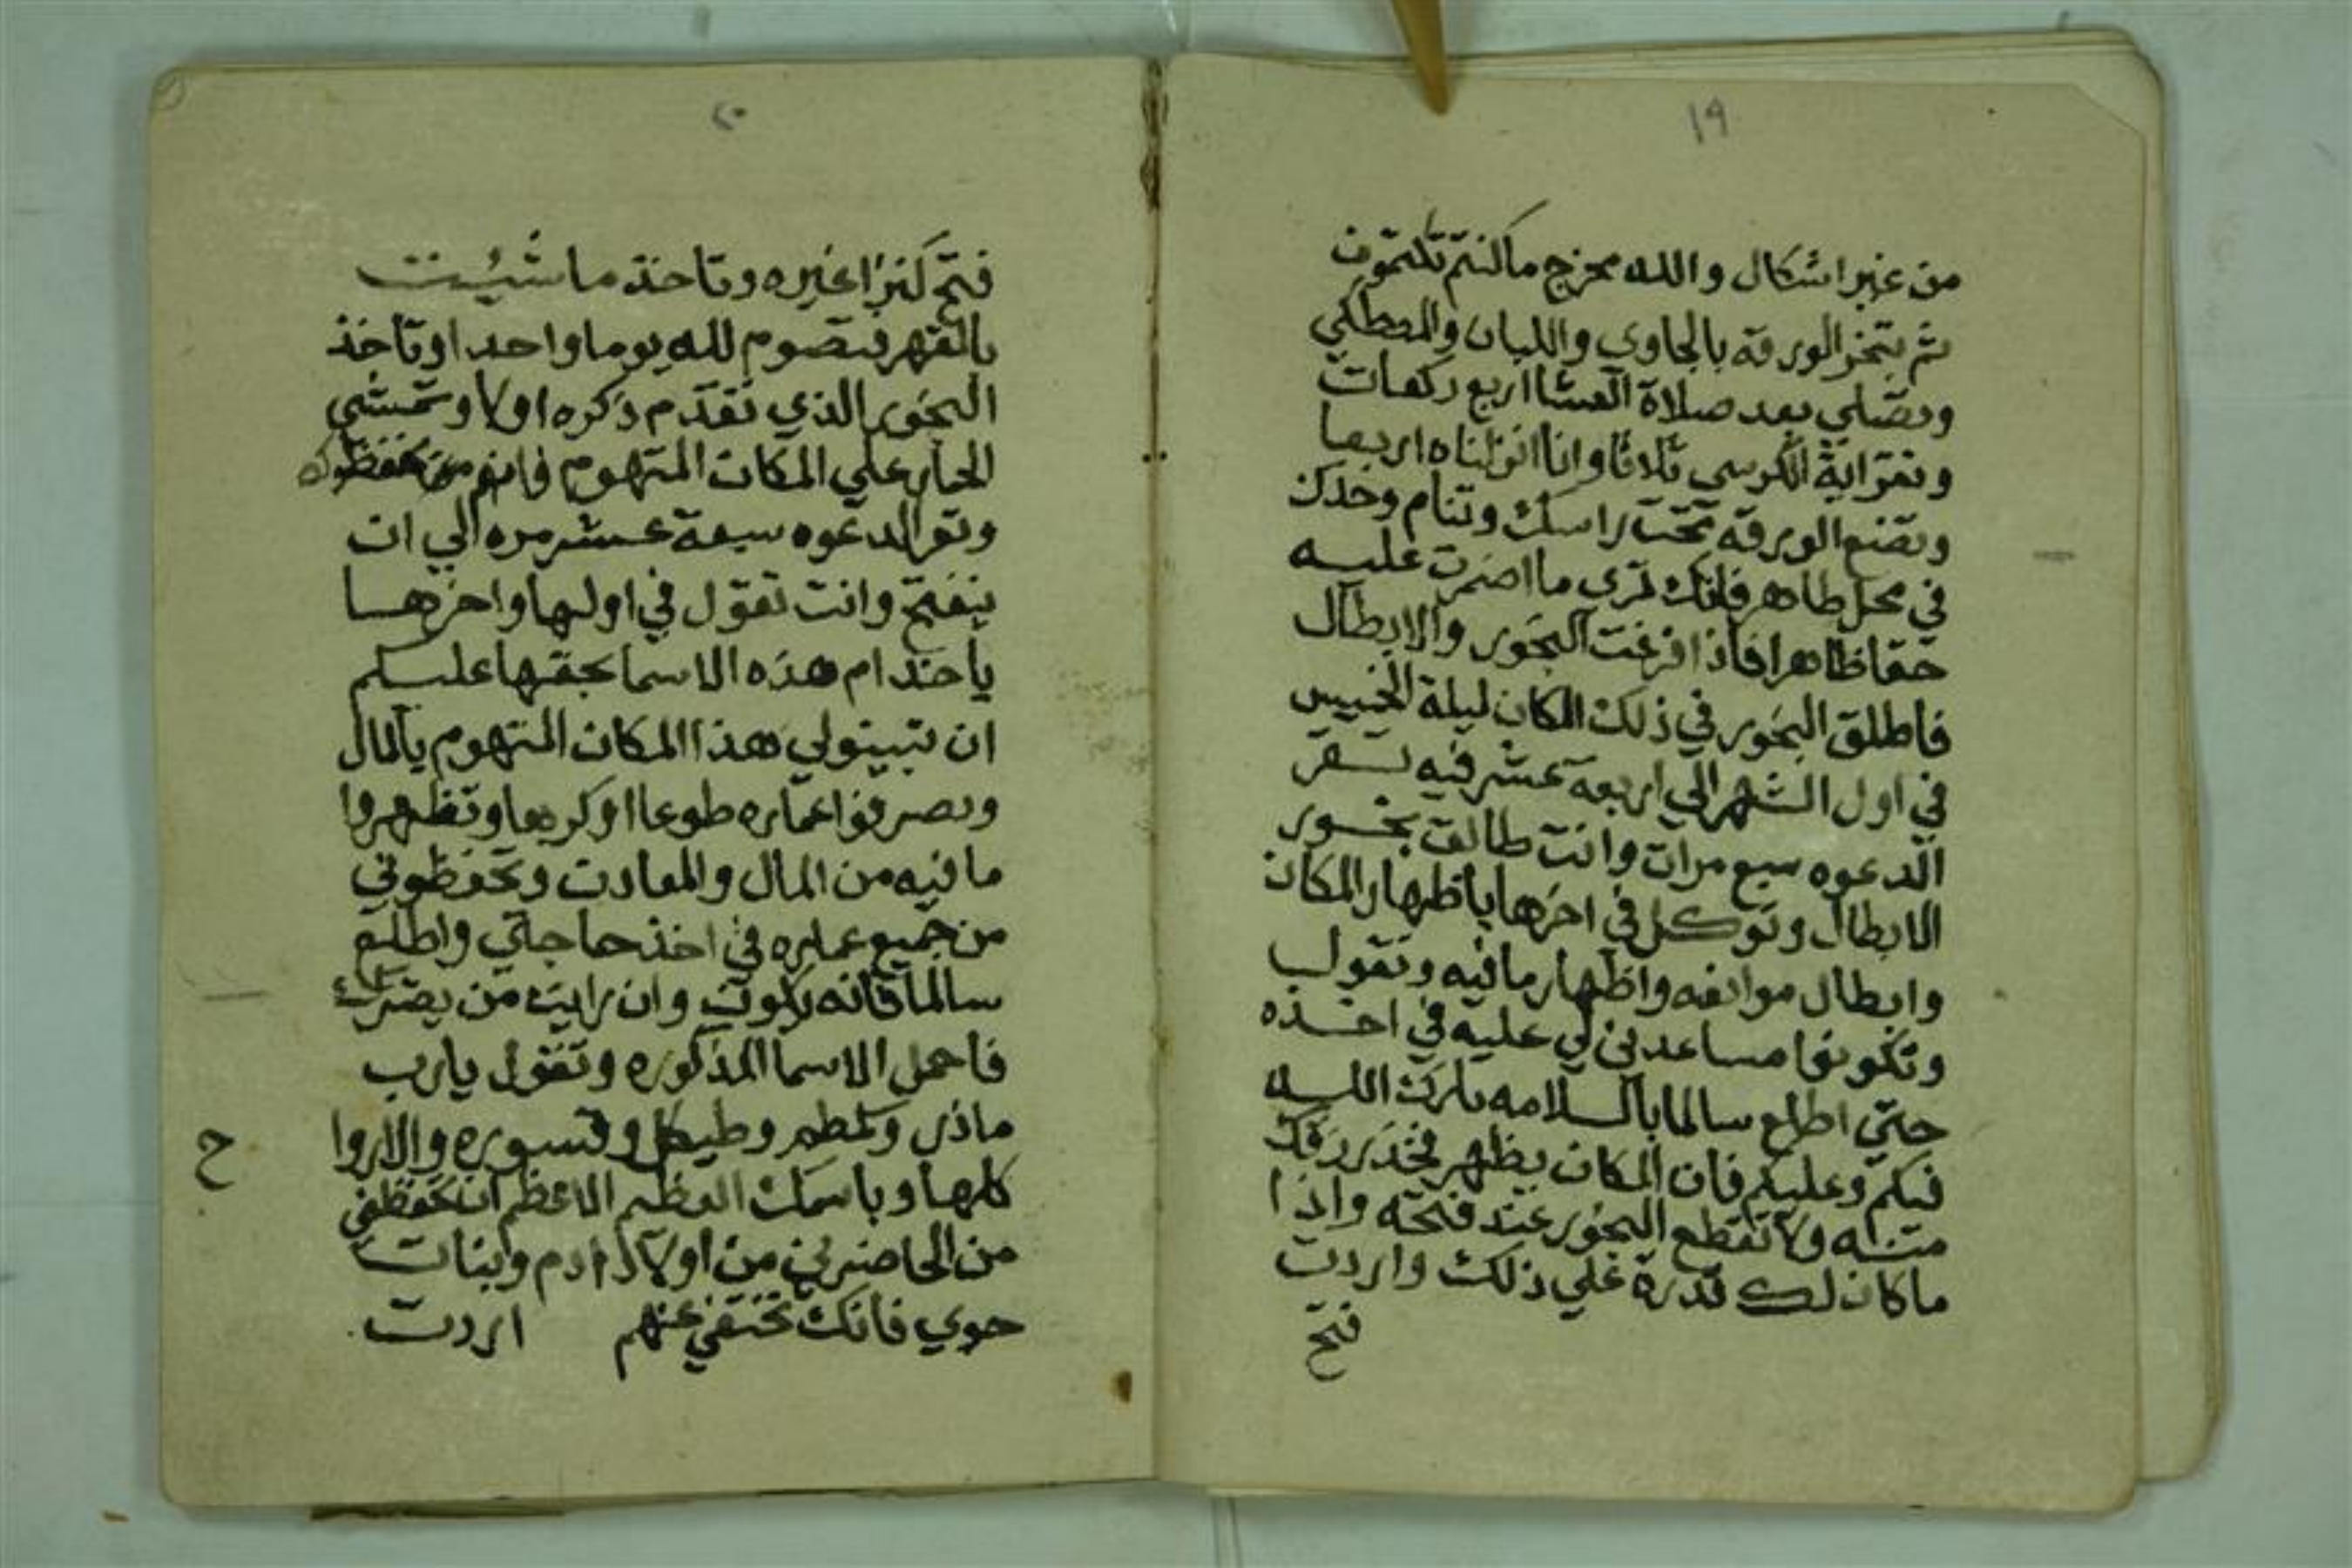 ١٩
من غير اشكال والله مخرج ما كنتم تكتمون
ثم تبخر الورقه بالجاوي واللبان والمصطكي
وتصلي بعد صلاة العشا اربع ركعات
وتقرا اية الكرسي ثلاثا وانا انزلناه اربعا
وتضع الورقه تحت راسك وتنام وحدك
في محل طاهر فانك تري ما اضمرت عليه
حقا ظاهرا فاذا فرغت البخور والابطال
فاطلق البخور في ذلك المكان ليلة الخميس
في اول الشهر الي اربعة عشر فيه تقر
الدعوه سبع مرات وانت طالق بخور
الابطال وتوكل في اخرها باظهار المكان
وابطال موانعه واظهار ما فيه وتقول
وتكونوا مساعدين لي عليه في اخذه
حتي اطلع سالما بالسلامه بارك الله
فيكم وعليكم فان المكان يظهر فخذ رزقك
منه ولا تقطع البخور عند فتحه واذا
ما كان لك قدرة علي ذلك واردت
فتح
٢٠
فتح كنزا غيره وتاخذ ما شيئت
بالقهر فتصوم لله يوما واحدا وتاخذ
البخور الذي تقدم ذكره اولا وتمشي
الحبار علي المكان المتهوم فانهم
وتقرا الدعوه سبعة عشر مره الي ان
ينفتح وانت تقول في اولها واخرها
يا خدام هذه الاسما بحقها عليكم
ان تبينولي هذا المكان المتهوم بالمال
وتصرفوا عماره طوعا اوكرها وتظهروا
ما فيه من المال والمعادن وتحفظوني
من جميع عماره في اخذ حاجتي واطلع
سالما فانه يكون وان رايت من يضرك
فاحمل الاسما المذكوره وتقول يارب
مازر وكمطم وطيكل وقسوره والاروا
ح
كلها وباسمك العظيم الاعظم ان تحفظني
من الحاضرين من اولاد ادم وبنات
حوي فانك تختفي عنهم اردت